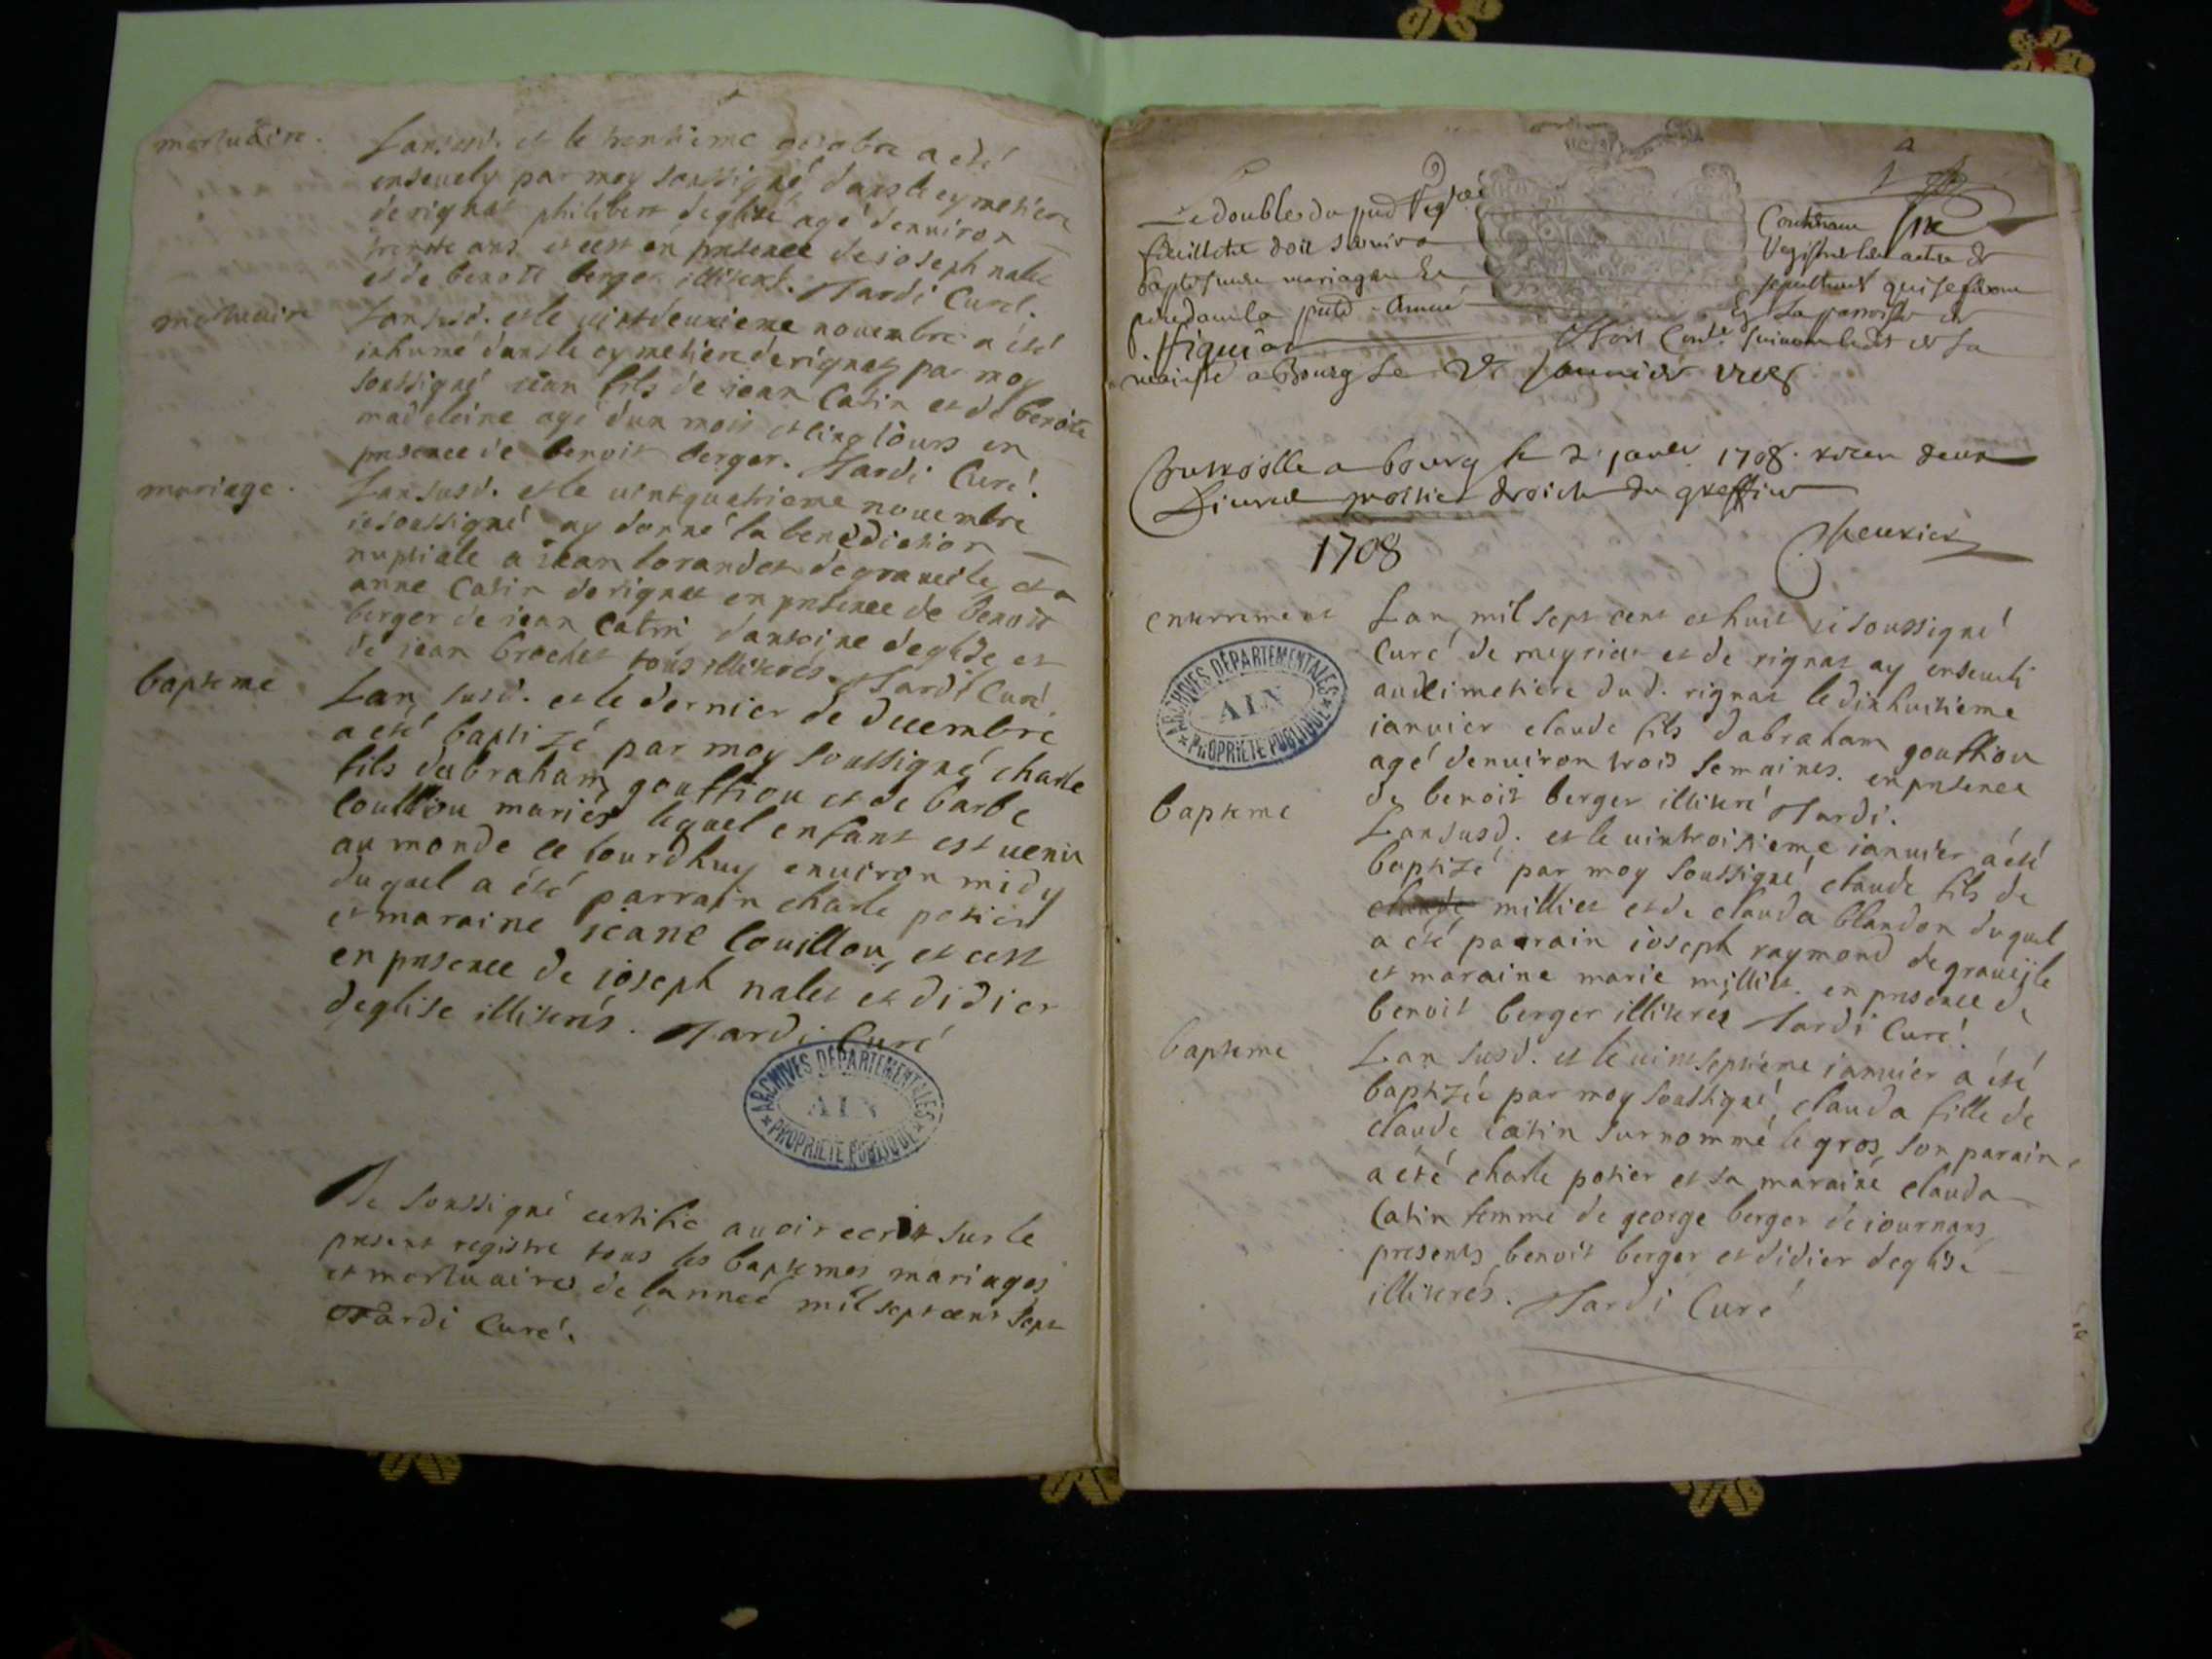 mortuaire.
Lan susd. et le trentieme octobre a eté
ensevely par moy soussigné, dans le cymetiere
de rignat philibert deglise agé denuiron
trente ans et cest en presence de joseph nalet
et de benoit berger illiterés. Tardi Curé.
mortuaire
Lan susd. et le uintdeuxieme nouembre a été
inhumé dans le cymetiere de rignat par moy
soussigné iean fils de iean Catin et de benoite
madeleine agé dun mois et cinq iours en
presence de benoit berger. Tardi Curé.
mariage.
Lan susd. et le uintquatrieme nouembre
ie soussigné ay donné la benediction
nuptiale a iean lorandet de graueile et a
anne Catin de rignat en presence de benoit
berger de iean Catin dantoine deglise et
de iean brochet tous illiterés. Tardi Curé.
bapteme
Lan susd. et le dernier de decembre
a eté baptizé par moy soussigné charle
fils dabraham gouthiou et de barbe
couillou mariés lequel enfant est uenu
au monde ce iourdhuy enuiron midy
duquel a été parrain charle potier
et maraine ieane Couillou, et cest
en presence de ioseph nalet et didier
deglise illiterés. Tardi Curé
ARCHIVES DÉPARTEMENTALES
AIN
PROPRIÉTÉ PUBLIQUE
Je soussigné certifie auoir ecrit sur le
present registre tous les baptemes mariages
et mortuaires de lanneé mil sept cent sept
Tardi Curé.
Le double du
feuillets doit seruir a
baptesmes mariages et
pendant la année
Contenant
Registrer les actes de
sepultures qui se feront
la parroisse de
a Bourg le Januier
Controolle a bourg le 2 januer 1708. receu deux
Liures moitié droicts du greffier
1708
enterrement
Lan mil sept cent et huit ie soussigné
Curé de meyriat et de rignat ay enseueli
au cimetiere dud. rignat le dixhuitieme
ianuier claude fils dabraham gouthiou
agé denuiron trois semaines. en presence
de benoit berger illiteré Tardi.
ARCHIVES DÉPARTEMENTALES
AIN
PROPRIÉTÉ PUBLIQUE
bapteme
Lan susd. et le uintroisieme ianuier a été
baptizé par moy soussigné, claude fils de
claude milliet et de clauda blandon duquel
a été parrain ioseph raymond de graueile
et maraine marie milliet. en presence de
benoit berger illiterés Tardi Curé.
bapteme
Lan susd. et le uintseptieme ianuier a été
baptizée par moy soussigné, clauda fille de
claude catin surnommé le gros, son parain
a été charle potier et sa maraine clauda
Catin femme de george berger de iournans
presents benoit berger et didier deglise
illiterés. Tardi Curé